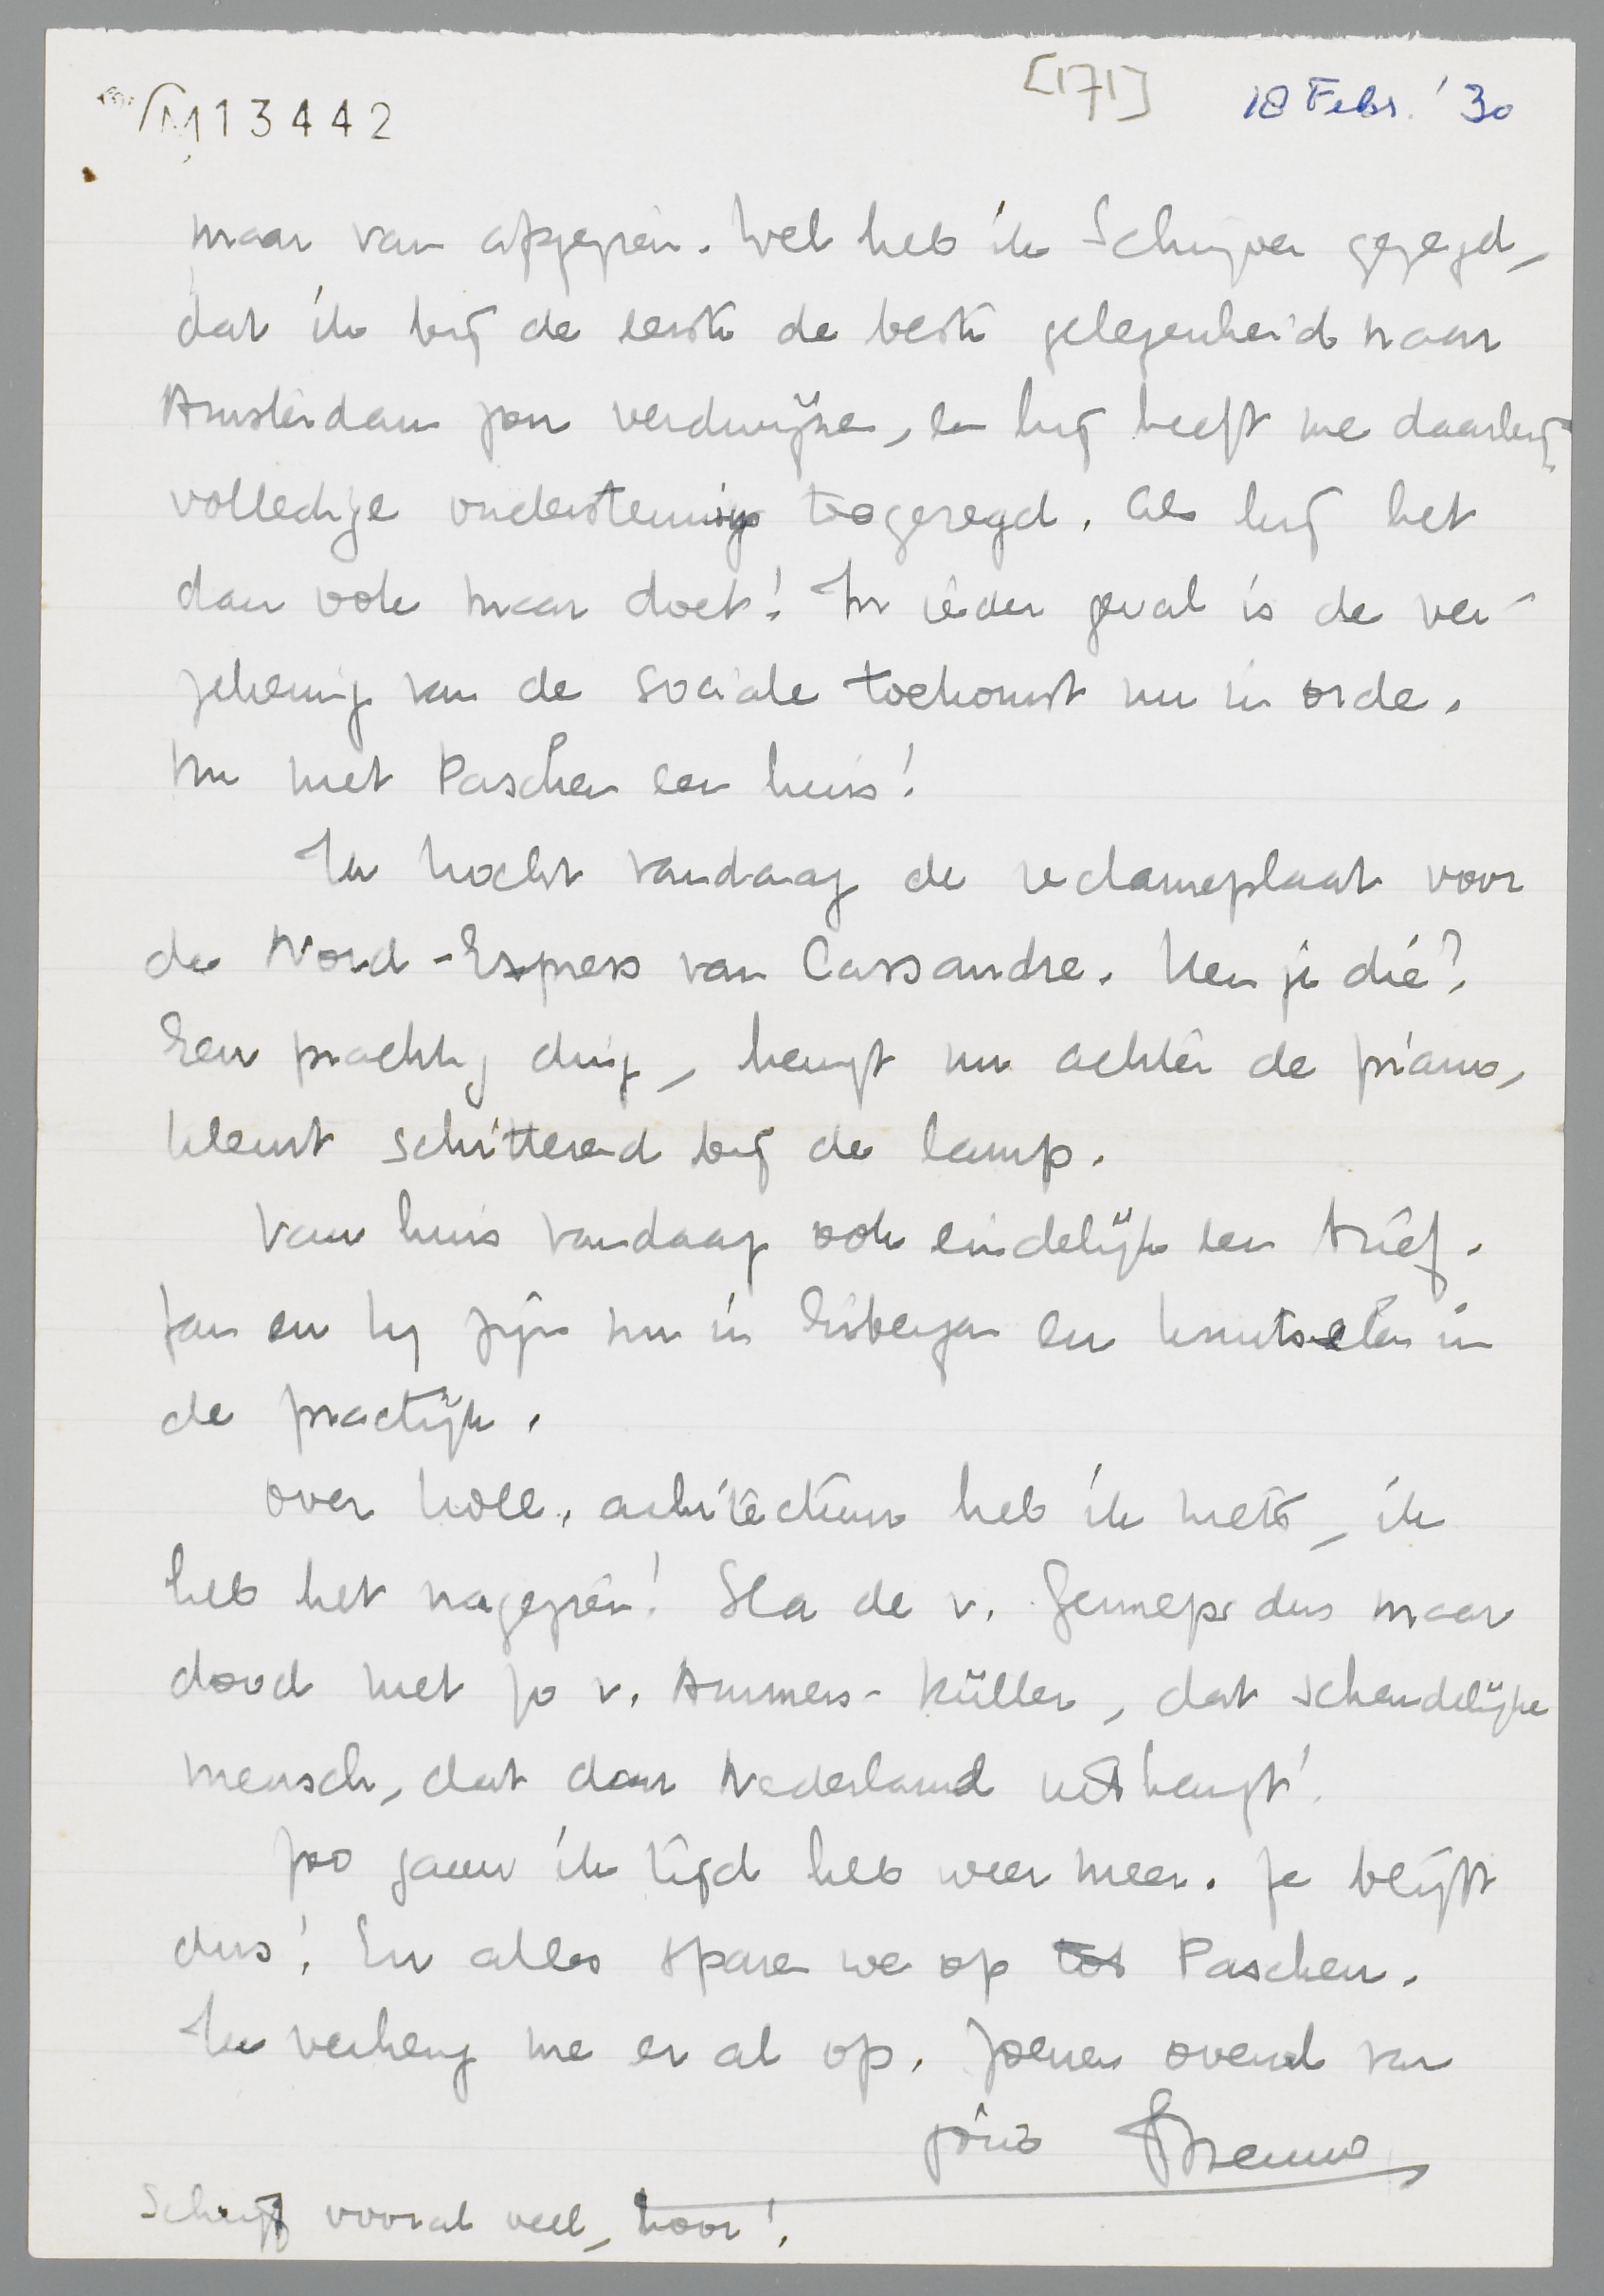 M13442 [171] 18 Febr. '30
maar van afgezien. Wel heb ik Schuyver gezegd,
dat ik bij de eerste de beste gelegenheid naar
Amsterdam zou verdwijnen, en hij heeft me daarbij
volledige ondersteuning toegezegd. Als hij het
dan ook maar doet! In ieder geval is de ver-
zekering van de sociale toekomst nu in orde.
Nu met Paschen een huis!
Ik kocht vandaag de reclameplaat voor
de Nord-Express van Cassandre. Ken je die?
Een prachtig ding, hangt nu achter de piano,
kleurt schitterend bij de lamp.
Van huis vandaag ook eindelijk een brief.
Jan en hij zijn nu in Eibergen en knutselen in
de practijk.
Over holl. architectuur heb ik niets, ik
heb het nagezien! Sla de v. Genneps dus maar
dood met Jo v. Ammers-Küller, dat schandelijke
mensch, dat daar Nederland uithangt!
Zoo gauw ik tijd heb weer meer. Je blijft
dus! En alles sparen we op tot Paschen.
Ik verheug me er al op. Zoenen overal van
jóuw Menno
Schrijf vooral veel, hoor!